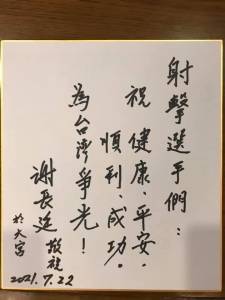 射擊選手們：
祝 健康、平安。
順利、成功。
為台灣爭光！
謝長廷 敬祝
於大宮
2021.7.22